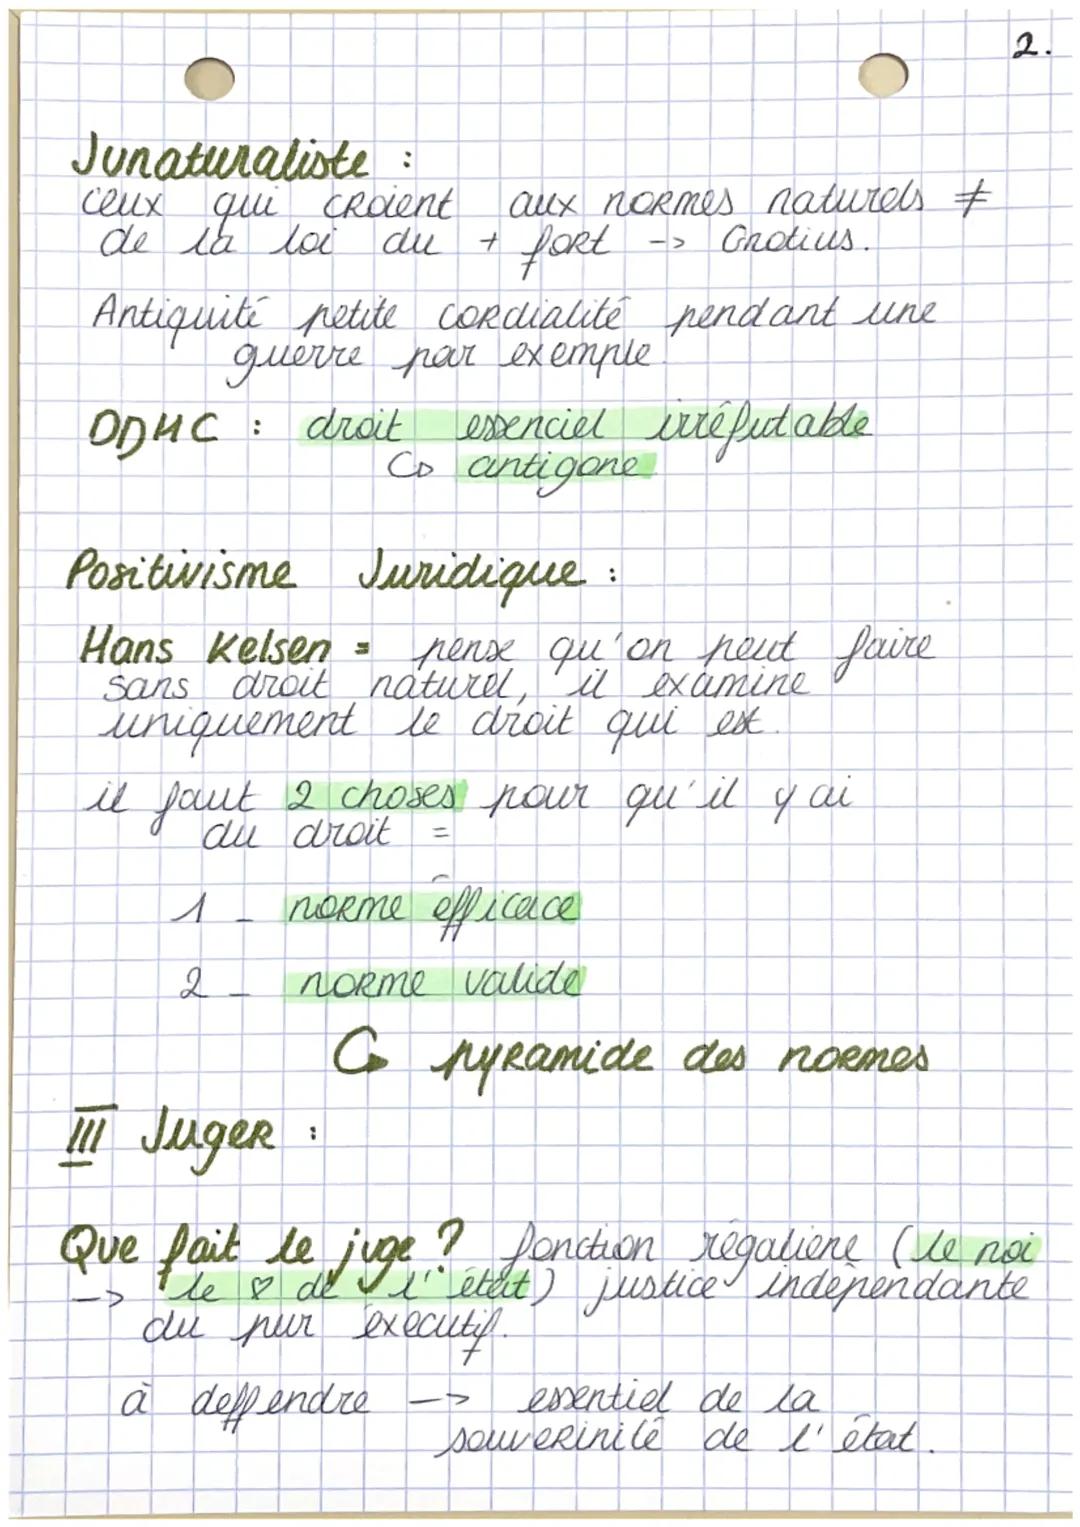 2.
Junaturaliste :
ceux qui croient aux normes naturels ≠
de la loi du + fort -> Grotius.
Antiquité petite cordialité pendant une
guerre par exemple.
DDHC : droit essenciel irréfutable
↳ antigone
Positivisme Juridique :
Hans Kelsen = pense qu'on peut faire
sans droit naturel, il examine
uniquement le droit qui est.
il faut 2 choses pour qu'il y ai
du droit =
1 - norme éfficace
2 - norme valide
↳ pyramide des normes
III Juger :
Que fait le juge ? fonction régalière (le roi
-> le ♡ de l'état) justice indépendante
du pvr éxecutif.
à deffendre --> essentiel de la
souverinité de l'état.